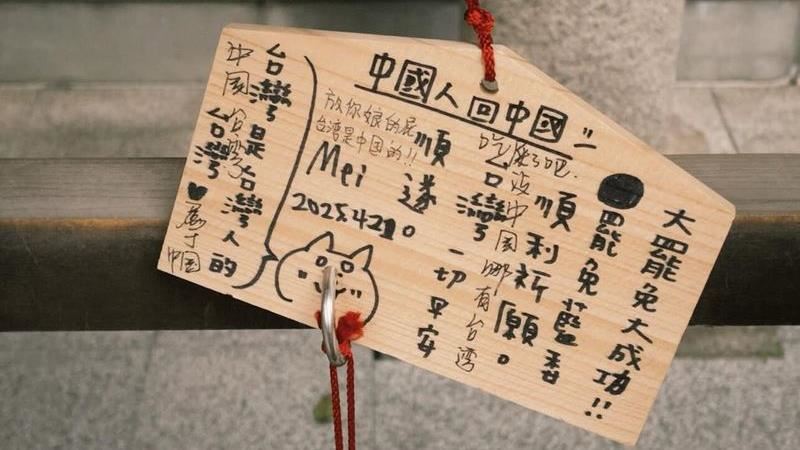 中國人回中國
大罷免大成功!!
罷免藍委
順利祈願。
没中国哪有台湾
台灣
順遂。
一切平安
放你娘的屁
台湾是中国的!!
Mei
2025.4.21
台灣是台灣人的
中国
台灣
♥
属于
中国